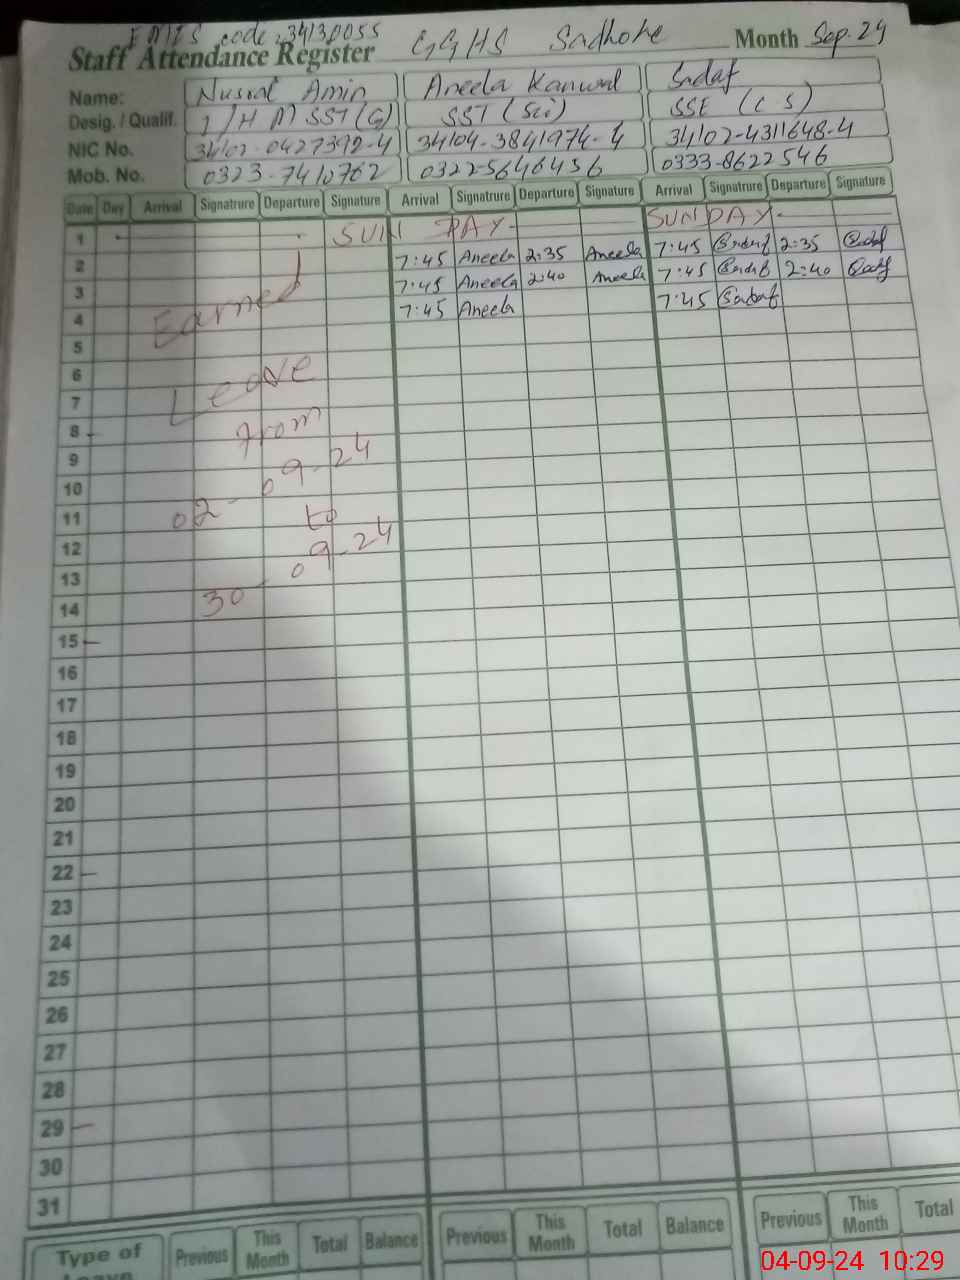 EMIS code: 34130055
Staff Attendance Register GGHS Sadhoke Month Sep-24
Name: Nusrat Amin Aneela Kanwal Sadaf
Desig. / Qualif. I/H M SST(G) SST (Sci) SSE (CS)
NIC No. 34102-0427392-4 34104-3841974-4 34102-4311648-4
Mob. No. 0323-7410762 0322-5646456 0333-8622546
Date Day Arrival Signatrure Departure Signature Arrival Signatrure Departure Signature Arrival Signatrure Departure Signature
1 SUN DAY- SUNDAY-
2 7:45 Aneela 2:35 Aneela 7:45 Sadaf 2:35 Sadaf
3 7:45 Aneela 2:40 Aneela 7:45 Sadaf 2:40 Sadaf
4 Earned 7:45 Aneela 7:45 Sadaf
5
6
7 Leave
8 from
9
10 02-09-24
11 to
12
13 30-09-24
14
15
16
17
18
19
20
21
22
23
24
25
26
27
28
29
30
31
Type of Leave Previous This Month Total Balance Previous This Month Total Balance Previous This Month Total
04-09-24 10:29